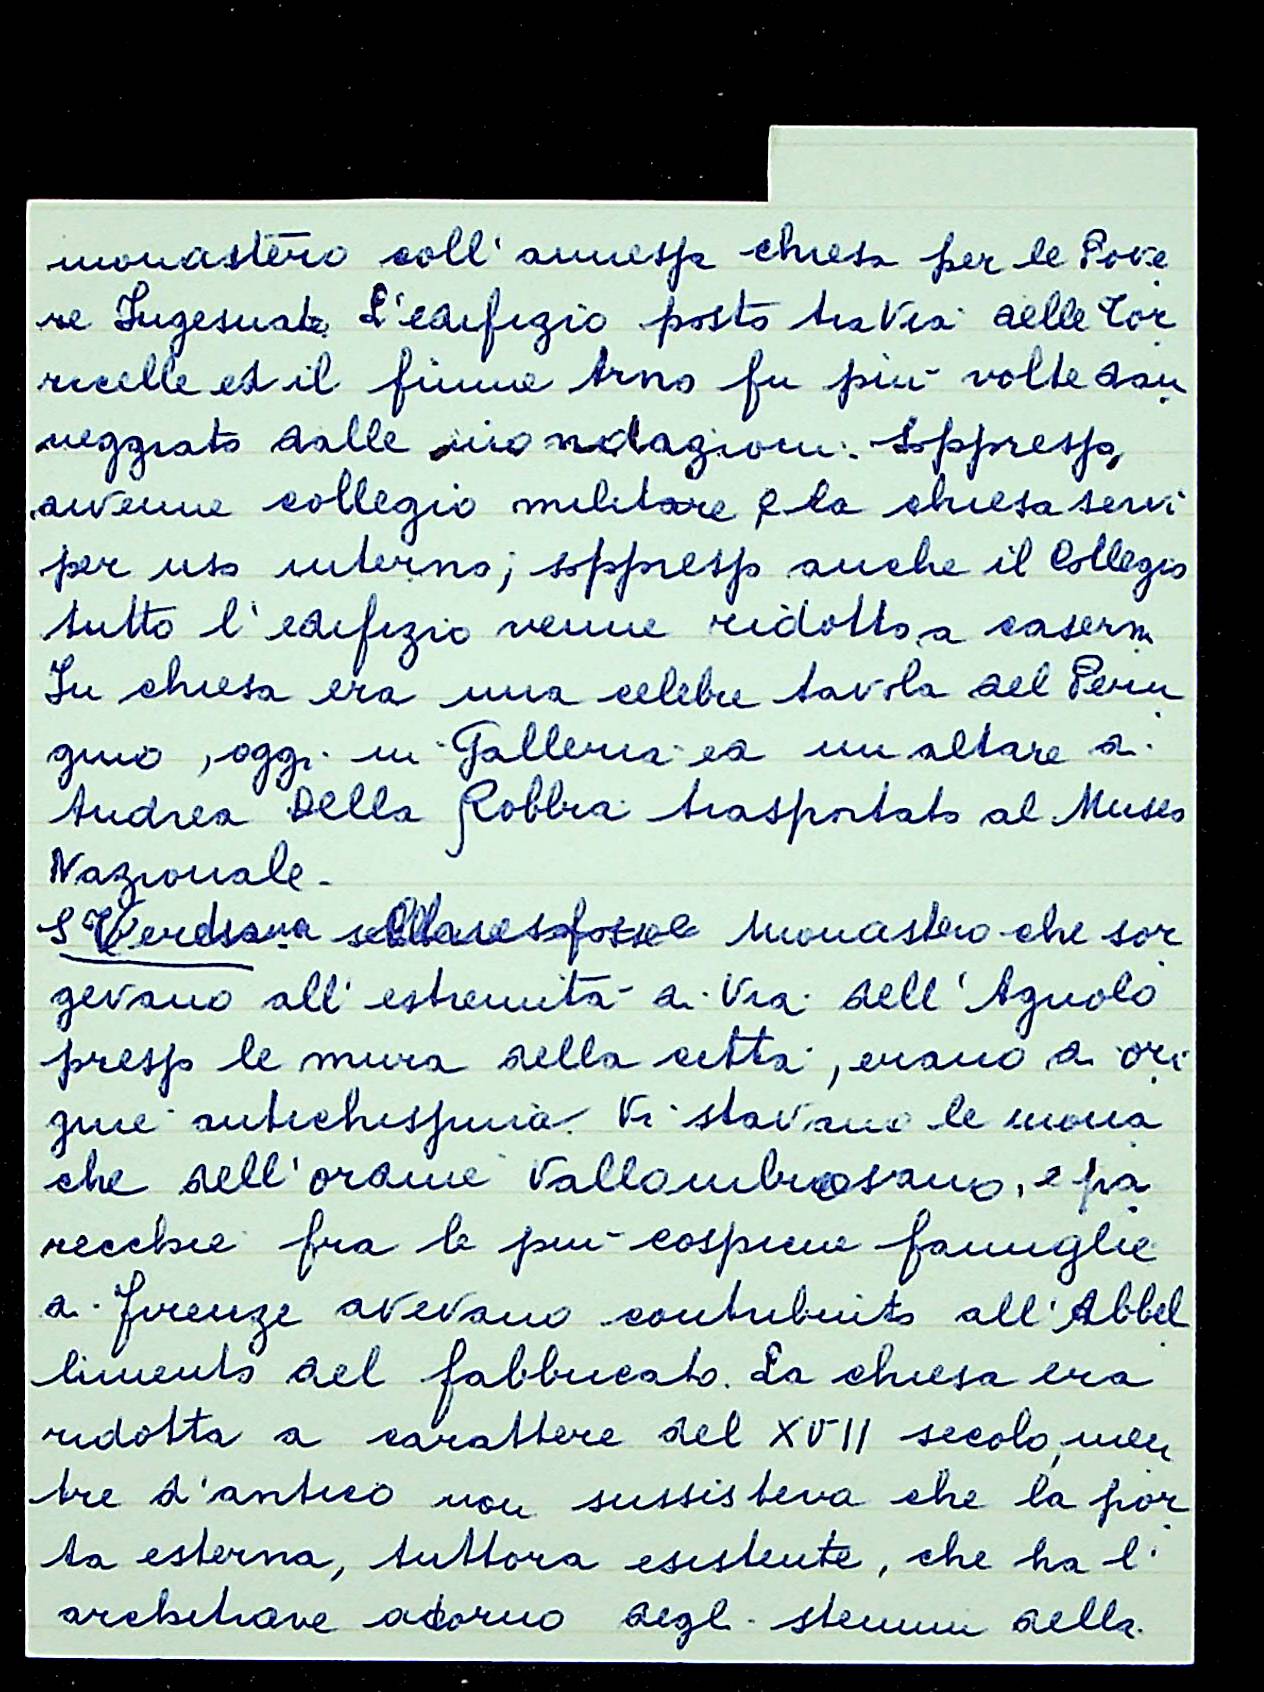 monastero coll'annessa chiesa per le Pove
re Ingesuate L'edifizio posto tra Via delle Tor
ricelle ed il fiume Arno fu più volte dan
neggiato dalle inondazioni. Soppresso,
avenne collegio militare e la chiesa servì
per uso interno; soppresso anche il Collegio
tutto l'edifizio venne ridotto a caserm
In chiesa era una celebre tavola del Peru
gino, oggi in Galleria ed un altare di
Andrea Della Robbia trasportato al Museo
Nazionale.
S Verdiana monastero che sor
gevano all'estremità di Via dell'Agnolo
presso le mura della città, erano di ori
gine antichissima. Vi stavano le mona
che dell'ordine Vallombrosano, e pa
recchie fra le più cospicue famiglie
di Firenze avevano contribuito all'Abbel
limento del fabbricato. La chiesa era
ridotta a carattere del XVII secolo, men
tre d'antico non sussisteva che la por
ta esterna, tuttora esistente, che ha l'
architrave adorno degli stemmi della